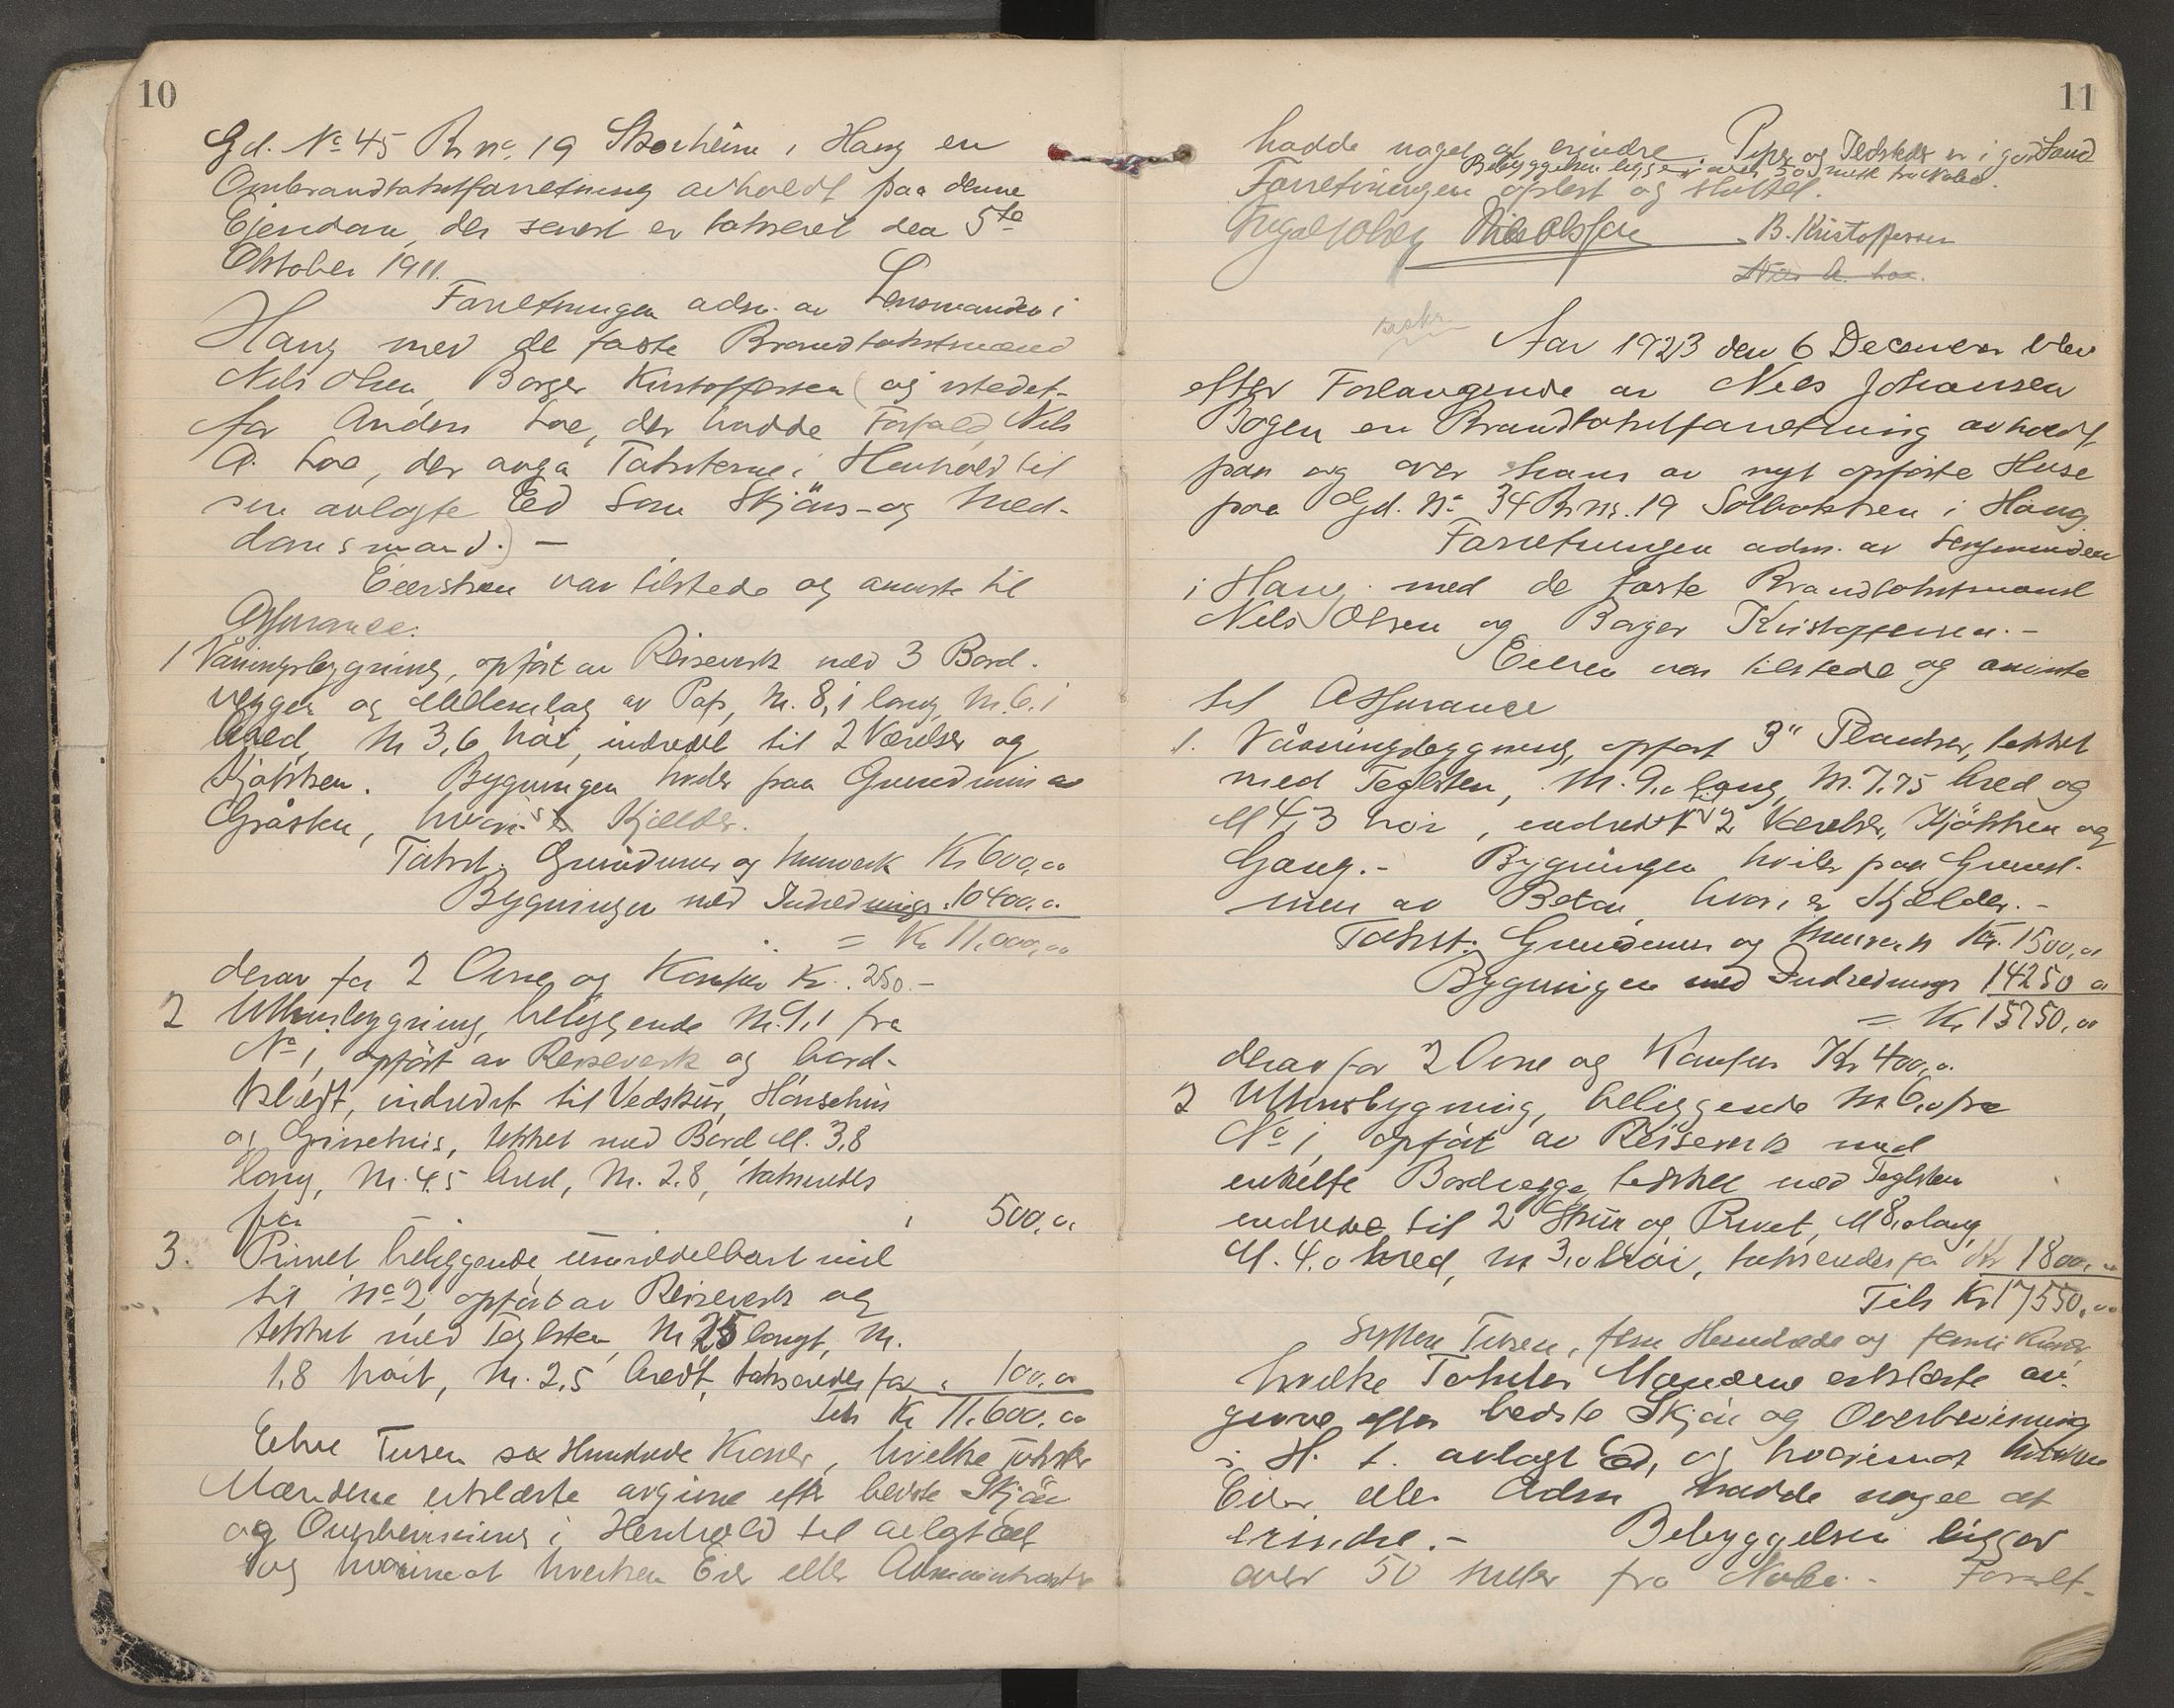 10
Gd. No 45 Br. no. 19 Skorheim i Haug en
Ombrandtakstforretning avholdt paa denne
Eiendom, der senest er takseret den 5te
Oktober 1911.
Forretningen adm. av Lensmanden i
Haug med de faste Brandtakstmænd
Nils Olsen, Borger Kristoffersen (og istedet-
for Anders Loe, der hadde Forfald, Nils
A. Loe, der avga Taksterne i Henhold til
sin avlagte Ed som Skjöns- og Med-
domsmand.) —
Eiersken var tilstede og anviste til
Assurance:
1 Våningsbygning, opført av Reiseverk med 3 Bord-
vegger og Mellemlag av Pap, M. 8,1 lang, M. 6,1
bred, M 3,6 høi, indredet til 2 Værelser og
Kjøkken. Bygningen hviler paa Grundmur av
Gråsten, hvori er Kjælder.
Takst: Grundmur og Murverk Kr 600,00
Bygningen med Indrednings " 10400,00
= Kr 11.000,00
derav for 2 Ovne og Komfur Kr. 250.-
2 Uthusbygning, beliggende M. 9,1 fra
No 1, opført av Reiseverk og bord-
klædt, indredet til Vedskur, Hönsehus
og Grisehus, tekket med Bord M. 3,8
lang, M. 4,5 bred, M. 2,8, takseredes
for " 500,00
3. Privet beliggende umiddelbart ind
til No 2, opført av Reiseverk og
tekket med Teglsten, M 2,5 langt, M.
1,8 høit, M. 2,5 bredt, takseredes for " 100,00
Tils Kr 11.600,00
Elve Tusen sex Hundrede Kroner, hvilke Takster
Mændene erklærte avgivne efter bedste Skjön
og Overbevisning i Henhold til avlagt Ed
og hvorimot hverken Eier eller Administrator
11
hadde noget at erindre. Piper og Ildsteder er i god Stand
Bebyggelsen ligger over 50 meter fra Nabo.
Forretningen oplest og sluttet.
Nils Olsen B. Kristoffersen
Nils A. Loe.
Aar 1923 den 6 December blev
efter Forlangende av Nils Johansen
Bogen en Brandtakstforretning avholdt
paa og over hans av nyt opførte Huse
paa Gd. No 34 Br. nr. 19 Solbakken i Haug
Forretningen adm. av Lensmanden
i Haug med de faste Brandtakstmænd
Nils Olsen og Borger Kristoffersen.-
Eieren var tilstede og anviste
til Assurance
1. Våningsbygning, opført 3" Planker, tekket
med Teglsten, M. 9,0 lang, M. 7,75 bred og
M 4,3 høi, indredet til 2 Værelser, Kjøkken og
Gang.- Bygningen hviler paa Grund-
mur av Beton, hvori er Kjælder.-
Takst: Grundmur og Murverk Kr. 1500,00
Bygningen med Indrednings 14250 00
= Kr 15750,00
derav for 2 Ovne og Komfur Kr 400,00.
2 Uthusbygning, beliggende M 6,0 fra
No 1, opført av Reiseverk med
enkelte Bordvegge, tekket med Teglsten
indredet til 2 Skur og Privet, M 8,0 lang,
M. 4,0 bred, M 3,0 høi, takseredes for Kr 1800,00
Tils Kr 17550,00
Sytten Tusen, fem Hundrede og femti Kroner,
hvilke Takster Mændene erklærte av-
givne efter bedste Skjön og Overbevisning
i H. t. avlagt Ed, og hvorimot hverken
Eier eller Adm hadde noget at
erindre.- Bebyggelsen ligger
over 50 meter fra Nabo.- Forret-